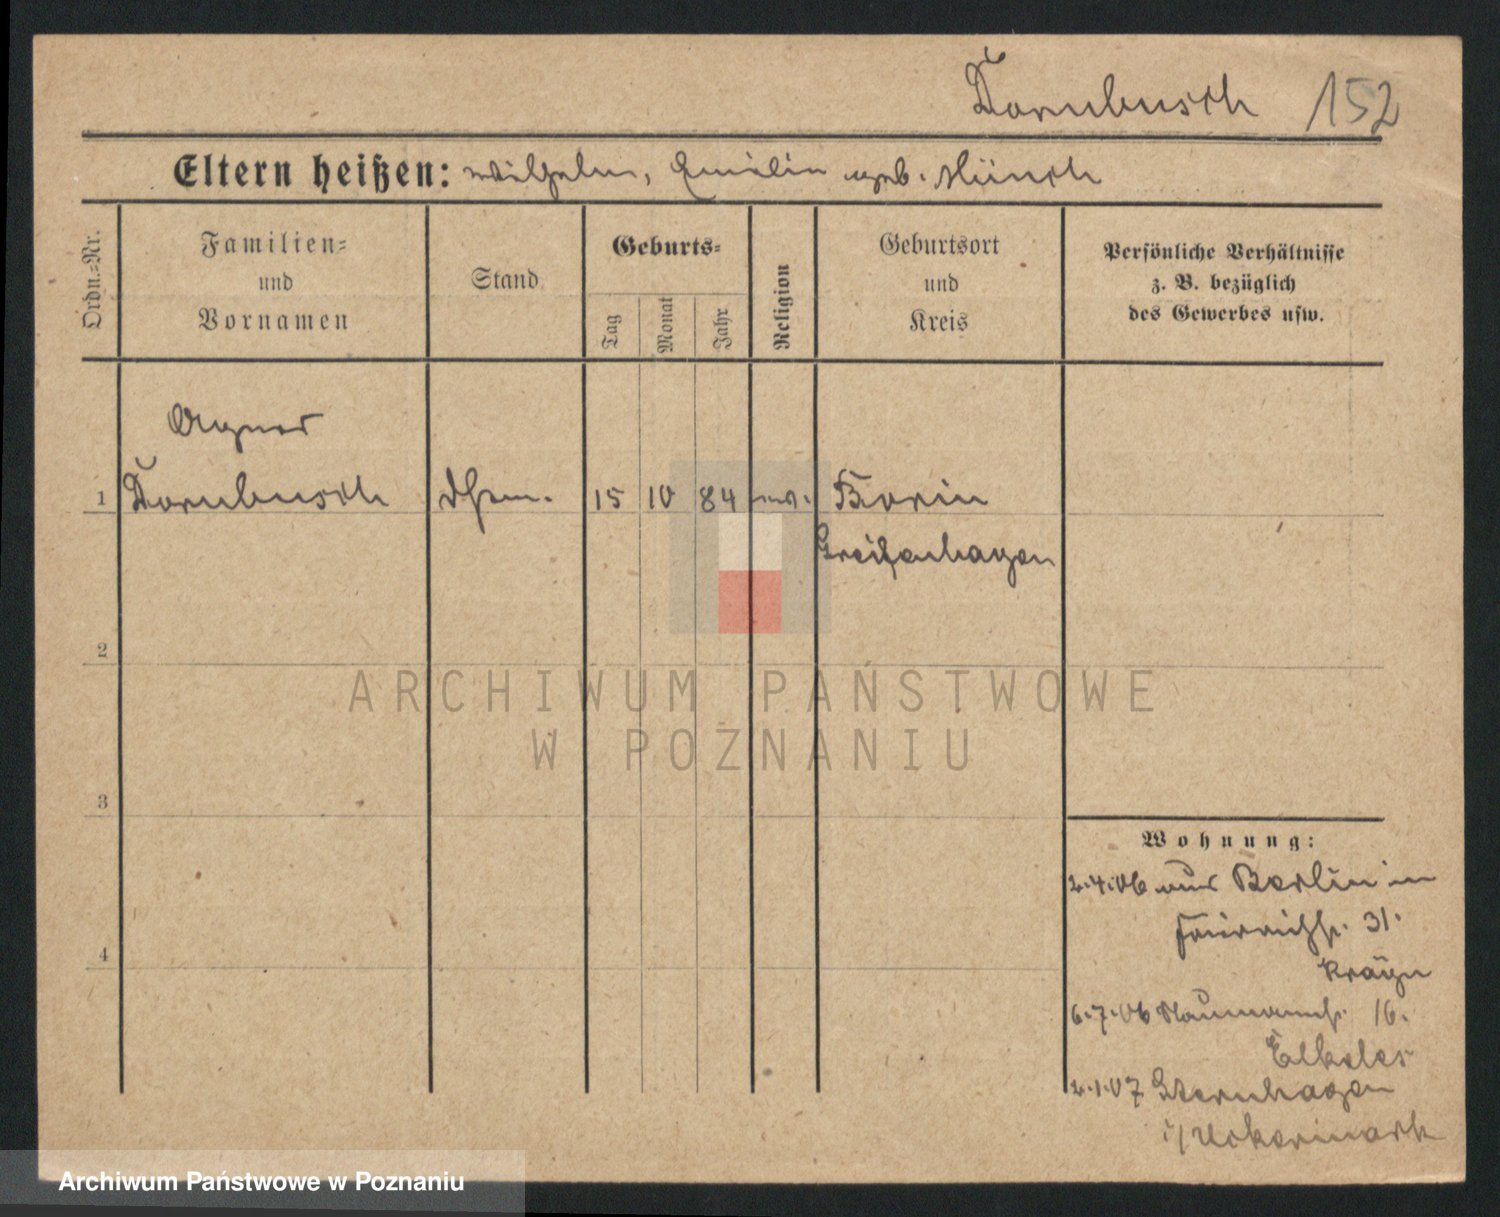 Dornbusch 152
Eltern heißen: Wilhelm, Emilie geb. Münch
Ordn.=Nr.
Familien=
und
Vornamen
Stand
Geburts=
Tag
Monat
Jahr
Religion
Geburtsort
und
Kreis
Persönliche Verhältnisse
z. B. bezüglich
des Gewerbes usw.
Agnes
1 Dornbusch 15 10 84 ev. Borin
Greifenhagen
2
ARCHIWUM PAŃSTWOWE
W POZNANIU
3
Wohnung:
2.4.06 aus Berlin in
31.
4
6.7.06 Naumannstr. 16.
Elkeles
2.1.07 Sternhagen
i/Uckermark
Archiwum Państwowe w Poznaniu